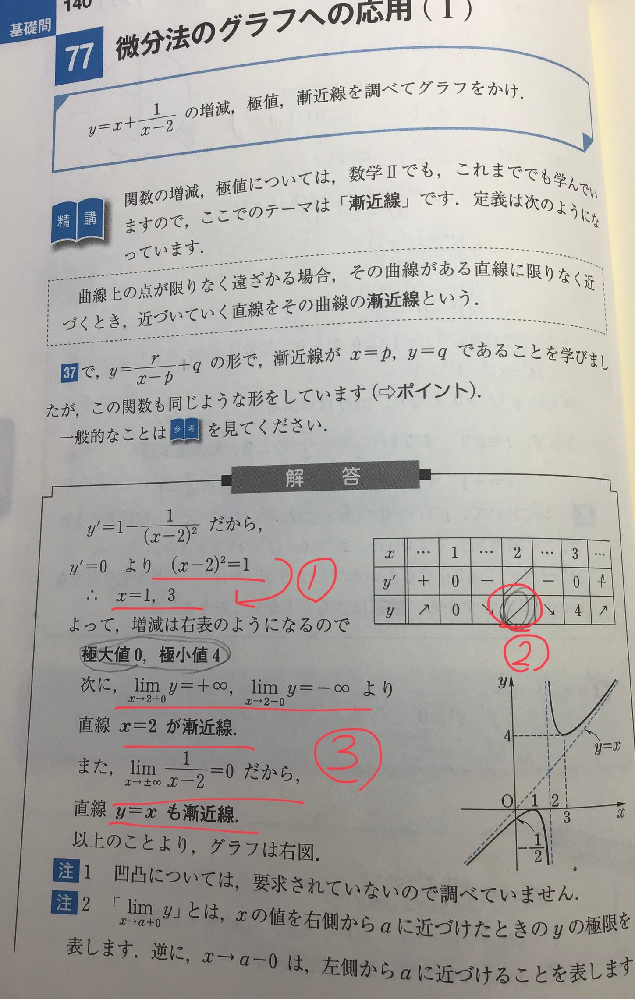 140
基礎問
77 微分法のグラフへの応用(I)
y=x+1/(x-2) の増減，極値，漸近線を調べてグラフをかけ．
精講
関数の増減，極値については，数学Ⅱでも，これまででも学んでい
ますので，ここでのテーマは「漸近線」です．定義は次のようにな
っています．
曲線上の点が限りなく遠ざかる場合，その曲線がある直線に限りなく近
づくとき，近づいていく直線をその曲線の漸近線という．
37で，y=r/(x-p)+q の形で，漸近線が x=p，y=q であることを学びまし
たが，この関数も同じような形をしています(⇨ポイント)．
一般的なことは 参考 を見てください．
解答
y′=1-1/(x-2)² だから，
y′=0 より (x-2)²=1
①
∴ x=1, 3
よって，増減は右表のようになるので
極大値0，極小値4
x … 1 … 2 … 3 …
y′ + 0 - - 0 +
y ↗ 0 ↘ ↘ 4 ↗
②
次に，lim[x→2+0] y=+∞，lim[x→2-0] y=-∞ より
直線 x=2 が漸近線．
③
また，lim[x→±∞] 1/(x-2)=0 だから，
直線 y=x も漸近線．
以上のことより，グラフは右図．
y
4
y=x
O 1 2 x
3
-1/2
注 1 凹凸については，要求されていないので調べていません．
注 2 「lim[x→a+0] y」とは，xの値を右側からaに近づけたときのyの極限を
表します．逆に，x→a-0 は，左側からaに近づけることを表します